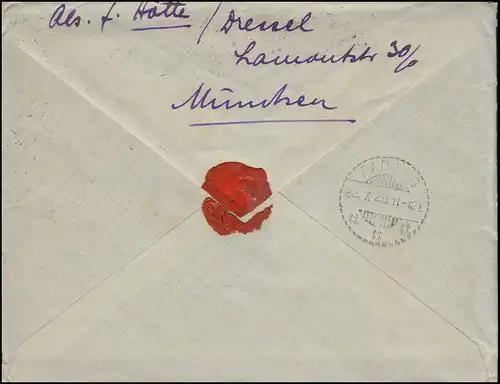 Abs. f. Hotte / Dressel
Lamontstr 30/0
München
22.7.20.11-12